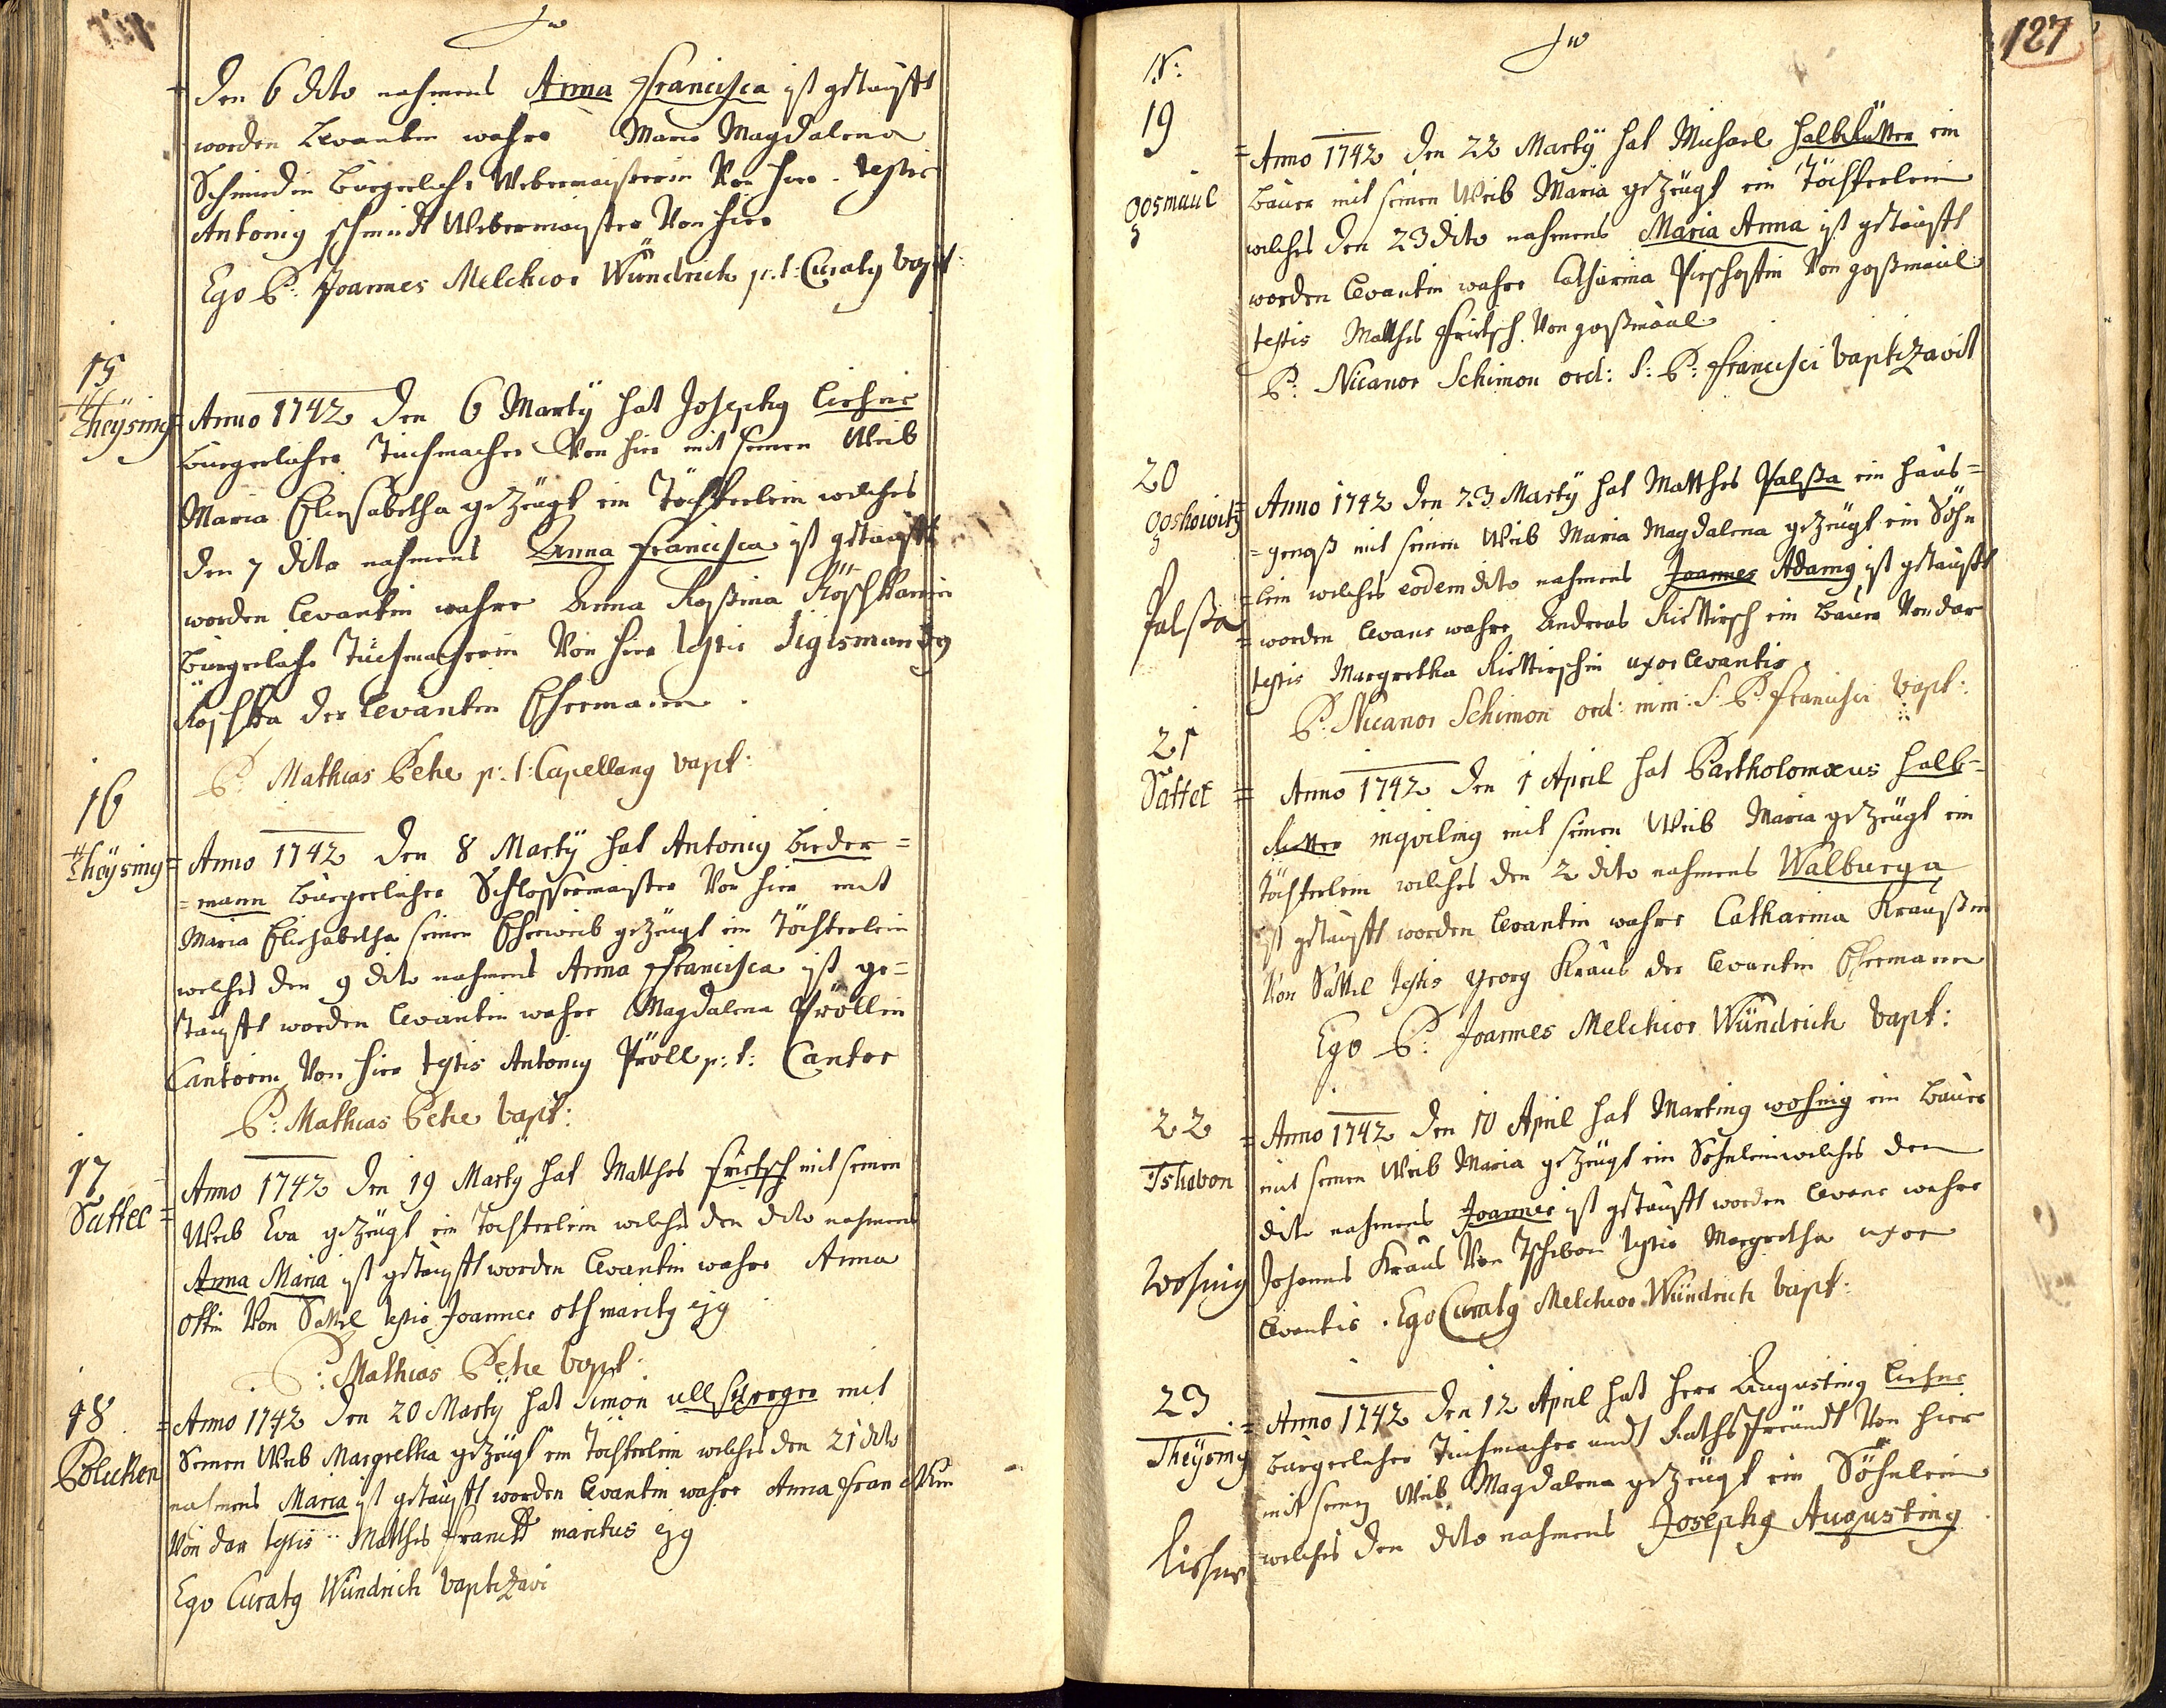 den 6 dito nahmens Anna Francisca ist getaufft
worden Levantin wahre Maria Magdalena
Schmiedin burgerliche Webermeisterin Von hier. testis
Antonig schmidt Webermeister Von hier
Ego P: Joannes Melchior Wündrich p: t: Curatg bapt:
15
Theÿsing
Anno 1742 den 6 Martÿ hat Josephg Lishne
burgerlicher Tuchmacher Von hier mit seinen Weib
Maria Eliesabetha gezeugt ein Töchterlein welches
den 7 dito nahmens Anna Francisca ist getaufft
worden Levantin wahre Anna Rosina
burgerliche Tuchmacherin Von hier testis Sigismandg
der Levantin Ehemann.
P: Mathias Pehe p: t: Capellang bapt:
16
Theÿsing
Anno 1742 den 8 Martÿ hat Antonig Bieder=
=mann burgerlicher Schlossermeister Von hier mit
Maria Eliesabetha seinen Eheweib gezeugt ein Töchterlein
welches den 9 dito nahmens Anna Francisca ist ge=
taufft worden Levantin wahre Magdalena Pröllin
Cantorin Von hier testis Antonig Pröll p: t: Cantor
P: Mathias Pehe bapt:
17
Sattel
Anno 1742 den 19 Martÿ hat Matthes Frietsch mit seinen
Weib Eva gezeugt ein Tochterlein welches den dito nahmens
Anna Maria ist getaufft worden Levantin wahre Anna
Ottin Von Sattel testis Joannes Oth maritg ejg
P: Mathias Pehe bapt:
18
Polickem
Anno 1742 den 20 Martÿ hat Simon
mit
Seinen Weib Margretha gezeugt ein Töchterlein welches den 21 dito
nahmens Maria ist getaufft worden Levantin wahre Anna
Von dar testis Matthes maritus ejg
Ego Curatg Wündrich baptizavi
127
N:
19
Gosmaul
Anno 1742 den 22 Martÿ hat Michael Halbritter ein
bauer mit seinen Weib Maria gezeugt ein Töchterlein
welches den 23 dito nahmens Maria Anna ist getaufft
worden Levantin wahre Catharina Von goßmaul
testis Matthes Frietsch Von goßmaul
P: Nicanor Schimon ord: S: P: Francisci baptizavit
20
Goshowitz
Palßa
Anno 1742 den 23 Martÿ hat Matthes Palßa ein haus=
=genoß mit seinen Weib Maria Magdalena gezeugt ein Söhn
=lein welches eodem dito nahmens Joannes Adamg ist getaufft
=worden Levans wahre Andreas ein bauer Von dar
testis Margretha uxor Levantis.
P: Nicanor Schimon ord: min: S: P: Francisci bapt:
21
Sattel
Anno 1742 den 1 April hat Bartholomæus Halb=
Ritter inqviling mit seinen Weib Maria gezeugt ein
Töchterlein welches den 2 dito nahmens Walburga
ist getaufft worden Levantin wahre Catharina Kraußin
Von Sattel testis georg Kraus der Levantin Ehemann
Ego P: Joannes Melchior Wündrich bapt:
22
Tshebon
Woshnig
Anno 1742 den 10 April hat Marting Woshnig ein bauer
mit seinen Weib Maria gezeugt ein Söhnlein welches den
dito nahmens Joannes ist getaufft worden Levans wahre
Johannes Kraus Von Tschebon testis Margretha uxor
Levantis. Ego Curatg Melchior Wündrich bapt:
23
Theÿsing
Lishne
Anno 1742 den 12 April hat Herr Augusting Lishne
burgerlicher Tuchmacher undt Rathsfreundt Von hier
mit seing Weib Magdalena gezeugt ein Söhnlein
welches den dito nahmens Josephg Augusting